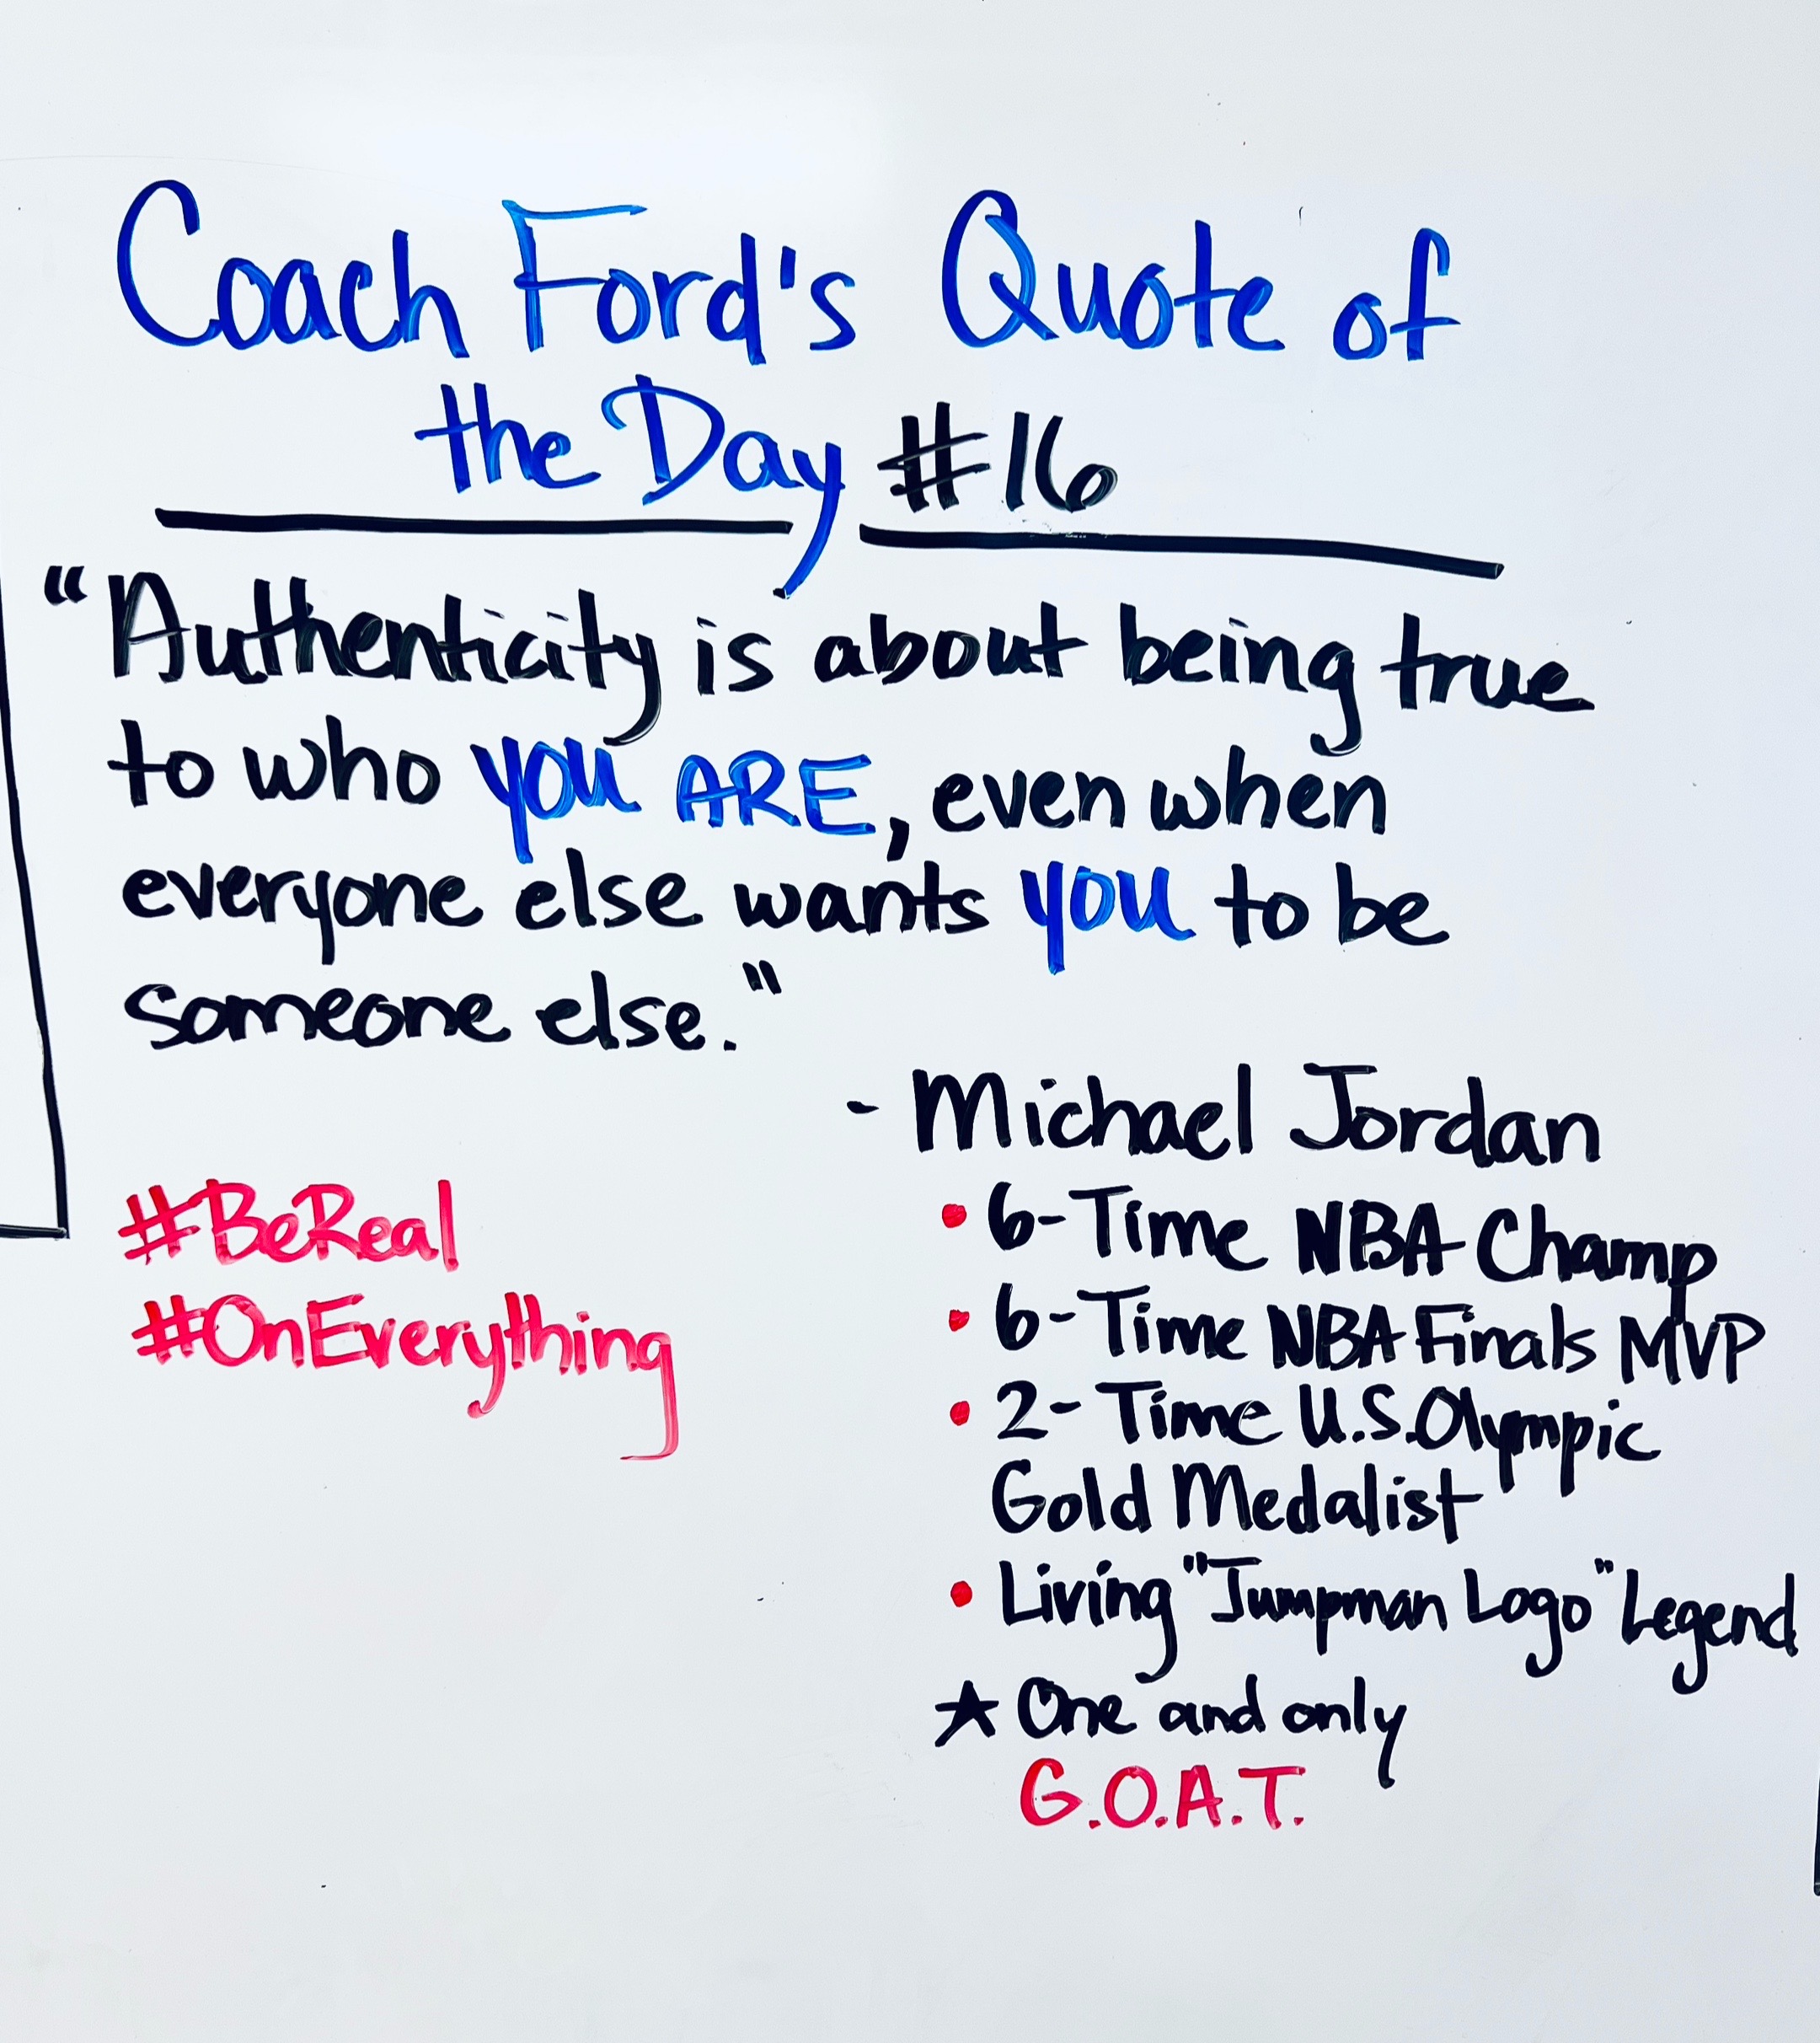 Coach Ford's Quote of
the Day #16
"Authenticity is about being true
to who you ARE, even when
everyone else wants you to be
someone else."
- Michael Jordan
#BeReal
#OnEverything
• 6-Time NBA Champ
• 6-Time NBA Finals MVP
• 2-Time U.S. Olympic
Gold Medalist
• Living "Jumpman Logo" Legend
★ One and only
G.O.A.T.